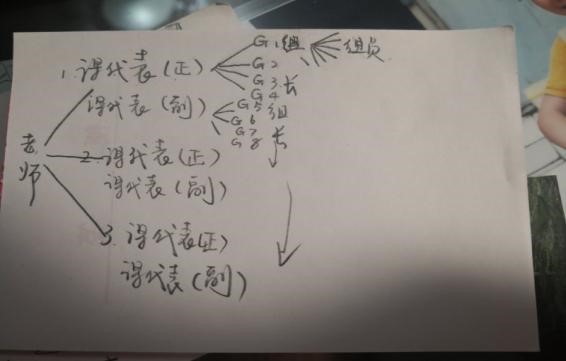 老师
1. 课代表(正)
课代表(副)
G1组
G2
G3长
G4
组员
G5组
G6
G7长
G8
2. 课代表(正)
课代表(副)
3. 课代表(正)
课代表(副)